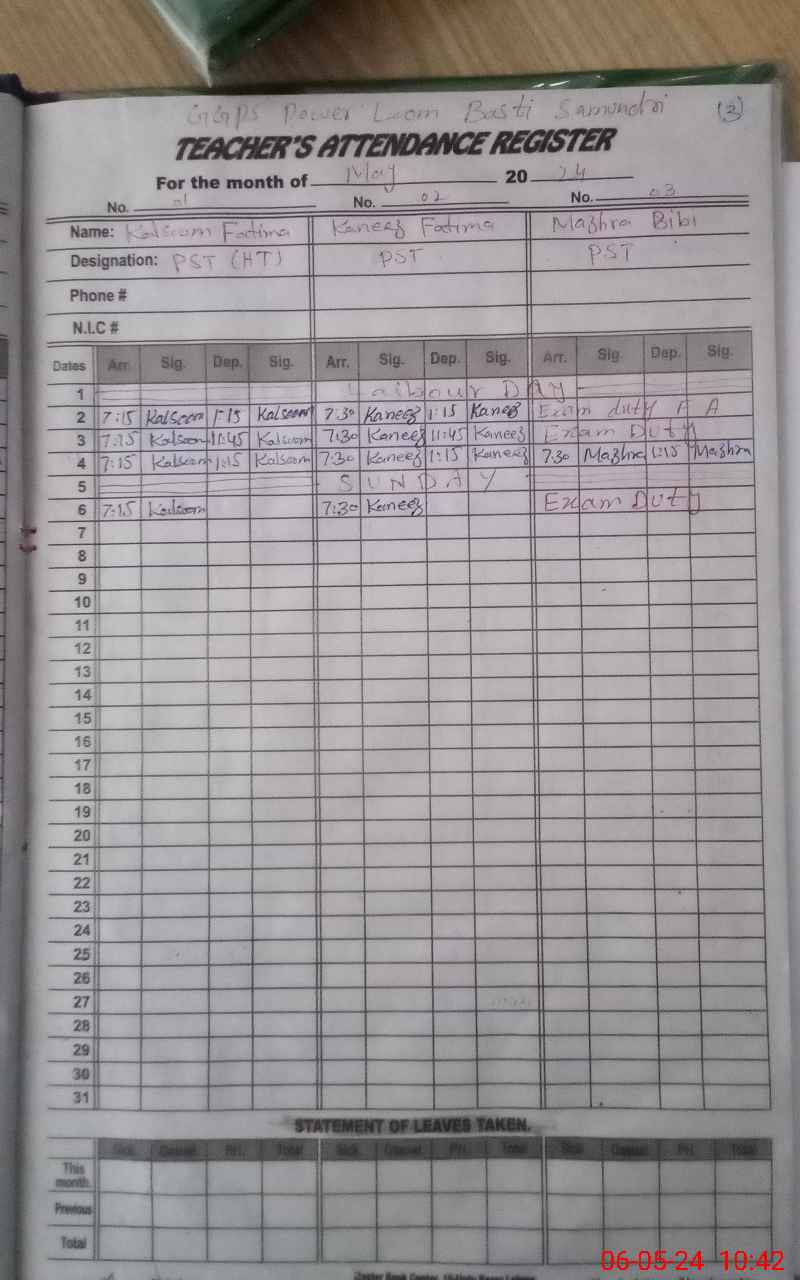 GGPS Power Loom Basti Samundri (3)
TEACHER'S ATTENDANCE REGISTER
For the month of May 20 24
No. 01 No. 02 No. 03
Name: Kalsoom Fatima Kaneez Fatima Mazhra Bibi
Designation: PST (HT) PST PST
Phone #
N.I.C #
Dates Arr. Sig. Dep. Sig. Arr. Sig. Dep. Sig. Arr. Sig. Dep. Sig.
1 Laibour DAY
2 7:15 Kalsoom 1:15 Kalsoom 7:30 Kaneez 1:15 Kaneez Exam duty P A
3 7:15 Kalsoom 11:45 Kalsoom 7:30 Kaneez 11:45 Kaneez Exam Duty
4 7:15 Kalsoom 1:15 Kalsoom 7:30 Kaneez 1:15 Kaneez 7:30 Mazhra 1:15 Mazhra
5 SUNDAY
6 7:15 Kalsoom 7:30 Kaneez Exam Duty
7
8
9
10
11
12
13
14
15
16
17
18
19
20
21
22
23
24
25
26
27
28
29
30
31
STATEMENT OF LEAVES TAKEN.
Sick Casual Pri. Total Sick Casual Pri. Total Sick Casual Pri. Total
This month.
Previous
Total
06-05-24 10:42